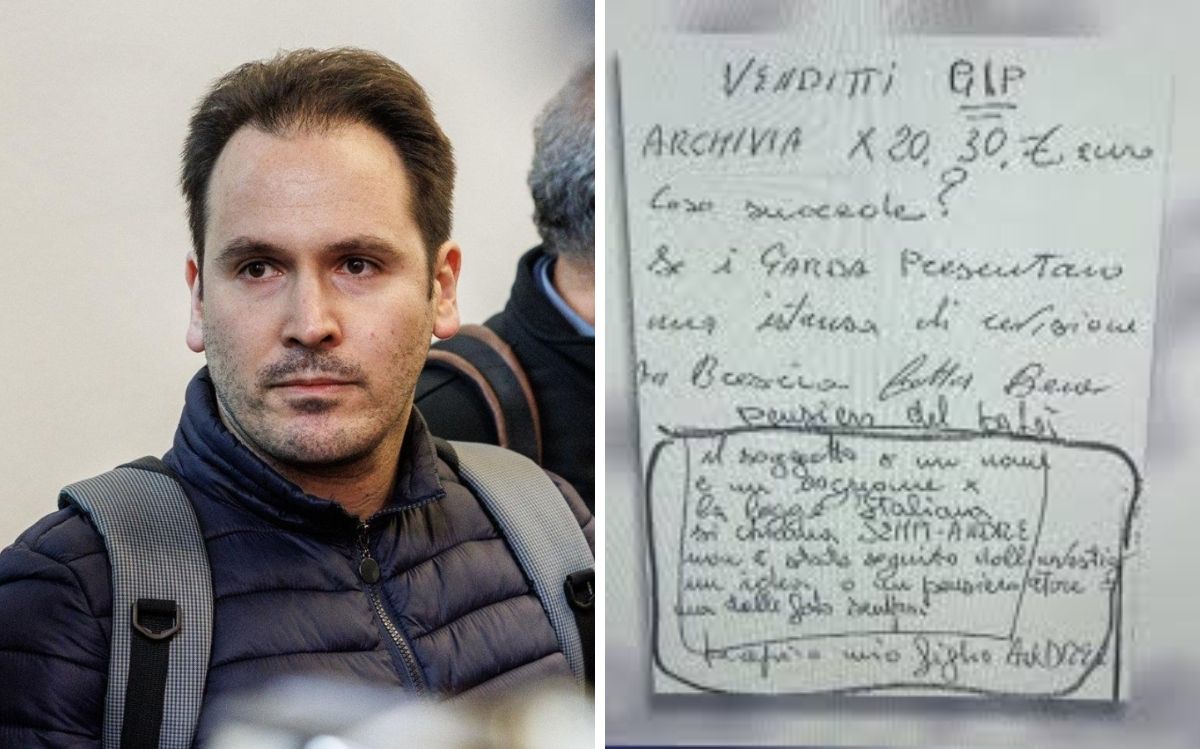 VENDITTI GIP
ARCHIVIA X 20, 30, € euro
Cosa succede?
Se i GARDA Presentano
una istanza di revisione
a Brescia
pensiero del
il soggetto o un nome
e un cognome x
la legge Italiana
si chiama ANDRE
non è stato seguito
un idea o un pensiero
ma delle foto
mio figlio ANDREA